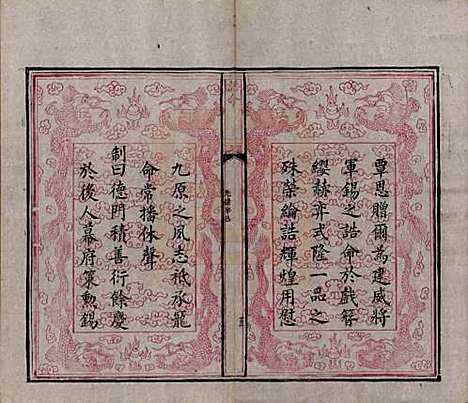 覃恩贈爾為建威將
軍錫之誥命於戲簪
纓赫弈式隆一品之
殊榮綸誥輝煌用慰
九原之夙志祇承寵
命常播休聲
制曰德門積善衍餘慶
於後人幕府策勲錫